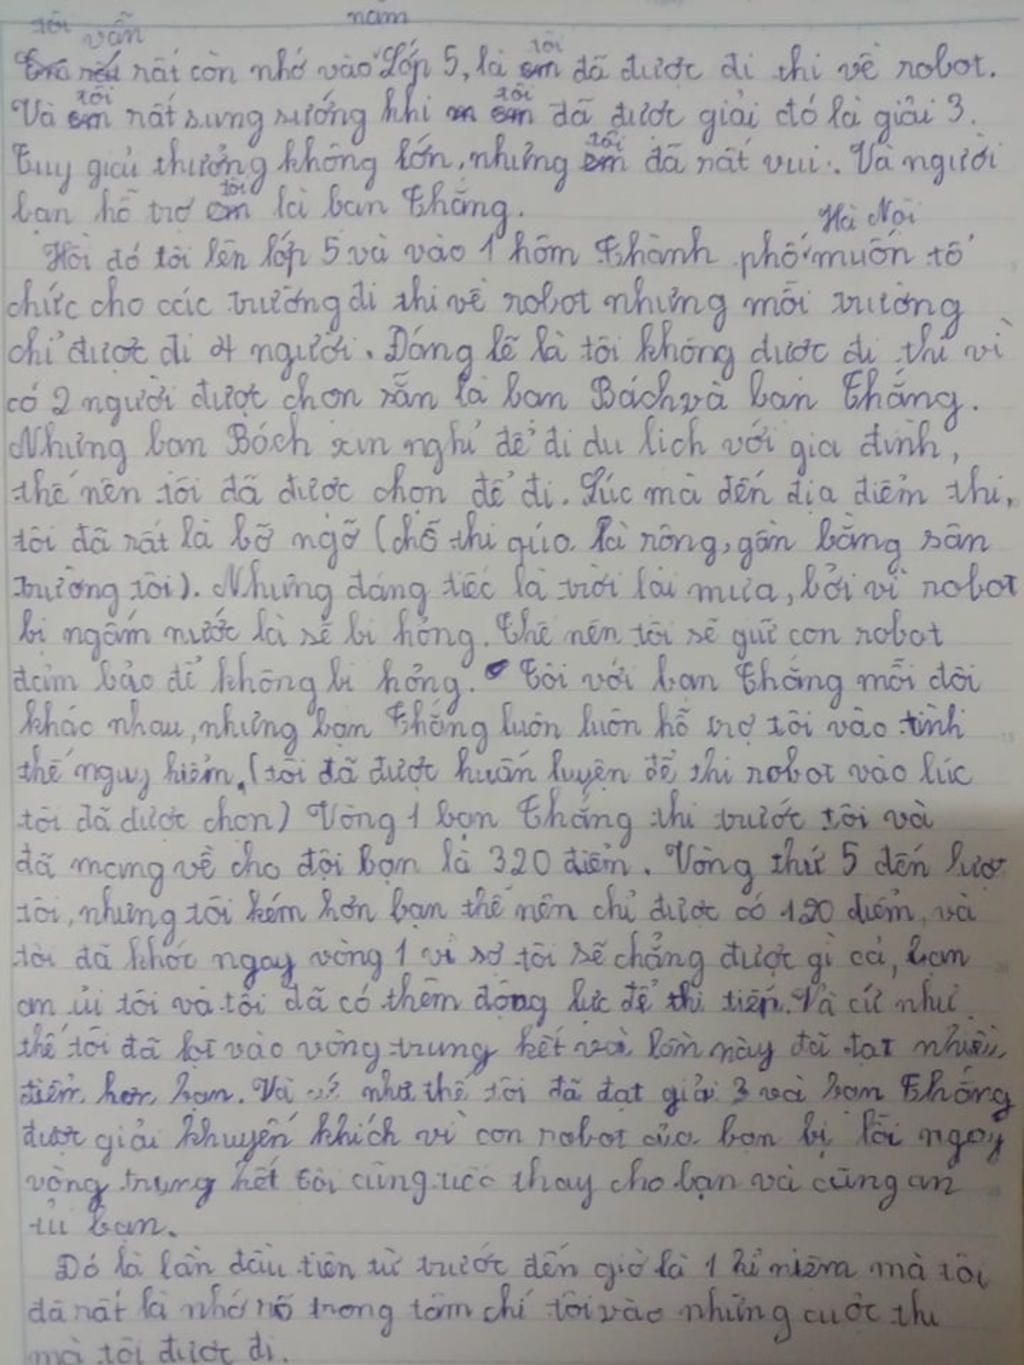 tôi vẫn năm
Em nếu rất còn nhớ vào Lớp 5, là em tôi đã được đi thi về robot.
Và em tôi rất sung sướng khi em tôi đã được giải đó là giải 3.
Tuy giải thưởng không lớn, nhưng em tôi đã rất vui. Và người
bạn hỗ trợ em tôi là bạn Thắng.
Hà Nội
Hồi đó tôi lên lớp 5 và vào 1 hôm Thành phố muốn tổ
chức cho các trường đi thi về robot nhưng mỗi trường
chỉ được đi 4 người. Đáng lẽ là tôi không được đi thi vì
có 2 người được chọn sẵn là bạn Bách và bạn Thắng.
Nhưng bạn Bách xin nghỉ để đi du lịch với gia đình,
thế nên tôi đã được chọn để đi. Lúc mà đến địa điểm thi,
tôi đã rất là bỡ ngỡ (chỗ thi qúa là rộng, gần bằng sân
trường tôi). Nhưng đáng tiếc là trời lại mưa, bởi vì robot
bị ngấm nước là sẽ bị hỏng. Thế nên tôi sẽ giữ con robot
đảm bảo để không bị hỏng. Tôi với bạn Thắng mỗi đội
khác nhau, nhưng bạn Thắng luôn luôn hỗ trợ tôi vào tình
thế nguy hiểm. (tôi đã được huấn luyện để thi robot vào lúc
tôi đã được chọn) Vòng 1 bạn Thắng thi trước tôi và
đã mang về cho đội bạn là 320 điểm. Vòng thứ 5 đến lượ
tôi, nhưng tôi kém hơn bạn thế nên chỉ được có 120 điểm, và
tôi đã khóc ngay vòng 1 vì sợ tôi sẽ chẳng được gì cả, bạn
an ủi tôi và tôi đã có thêm động lực để thi tiếp. Và cứ như
thế tôi đã lọt vào vòng trung kết và lần này đã đạt nhiều
điểm hơn bạn. Và cứ như thế tôi đã đạt giải 3 và bạn Thắng
được giải khuyến khích vì con robot của bạn bị lỗi ngay
vòng trung kết tôi cũng thay cho bạn và cũng an
ủi bạn.
Đó là lần đầu tiên từ trước đến giờ là 1 kỉ niệm mà tôi
đã rất là nhớ rõ trong tâm chí tôi vào những cuộc thi
mà tôi được đi.